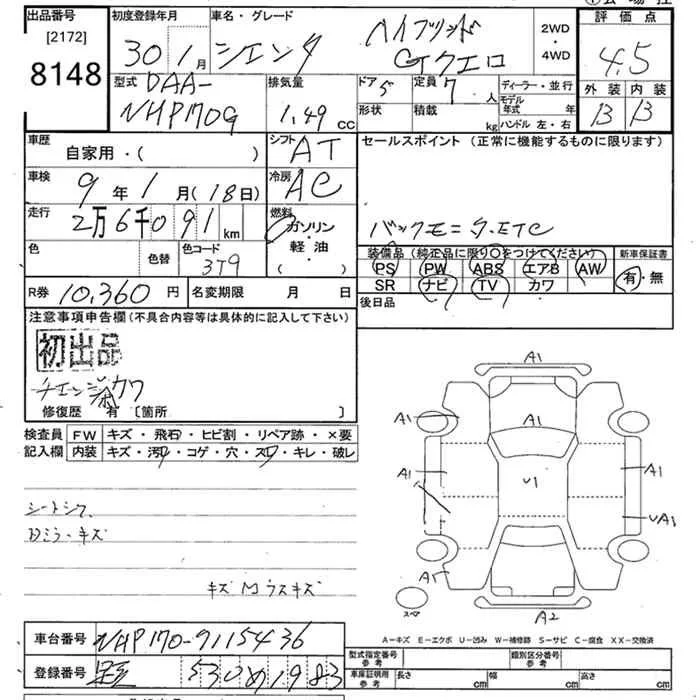 出品番号
[2172]
8148
初度登録年月
30 1月
車名・グレード
シエンタ ハイブリッド
Gクエロ
2WD
・
4WD
評価点
4.5
外装 内装
B B
型式
DAA-
NHP170G
排気量
1.49 cc
ドア 5
定員 7人
ディーラー・並行
形状
積載 kg
モデル年式 年
ハンドル 左・右
車歴
自家用・( )
シフト AT
セールスポイント (正常に機能するものに限ります)
車検
9年1月(18日)
冷房 AC
走行
2万6千091km
燃料
ガソリン
軽・油
( ・ )
バックモニタ.ETC
色
色替
色コード
3T9
装備品(純正品に限り○をつけてください)
新車保証書
PS PW ABS エアB AW
有・無
SR ナビ TV カワ
R券 10,360円
名変期限 月 日
後日品
注意事項申告欄(不具合内容等は具体的に記入して下さい)
初出品
修復歴 有 〔箇所 〕
検査員
記入欄
FW キズ・飛石・ヒビ割・リペア跡・×要
内装 キズ・汚れ・コゲ・穴・スレ・キレ・破レ
シートシワ
ミラーキズ
キズMウスキズ
A1
A1
A1
A1
A1
A1
U1
UA1
A1
A2
スペア
車台番号 NHP170-9115436
登録番号 530め1983
A-キズ E-エクボ U-凹み W-補修跡 S-サビ C-腐食 XX-交換済
型式指定番号
参考
類別区分番号
参考
車庫証明用
参考
長さ cm
幅 cm
高さ cm